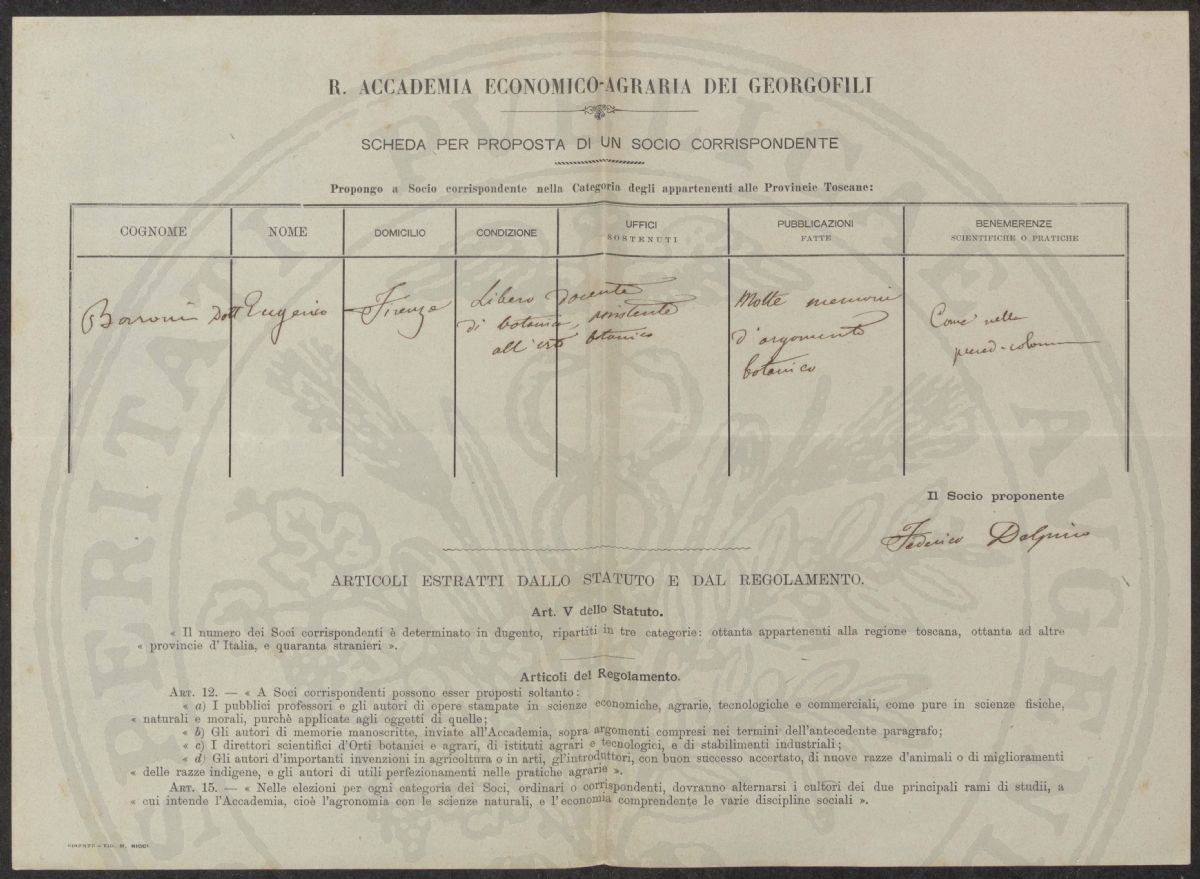 R. ACCADEMIA ECONOMICO-AGRARIA DEI GEORGOFILI
SCHEDA PER PROPOSTA DI UN SOCIO CORRISPONDENTE
Propongo a Socio corrispondente nella Categoria degli appartenenti alle Provincie Toscane:
COGNOME
NOME
DOMICILIO
CONDIZIONE
UFFICI
SOSTENUTI
PUBBLICAZIONI
FATTE
BENEMERENZE
SCIENTIFICHE O PRATICHE
Baroni Dott Eugenio
Firenze
Libero docente
di botanica, assistente
all'orto botanico
Molte memorie
d'argomento
botanico
Come nella
preced. colonna
Il Socio proponente
Federico Delpino
ARTICOLI ESTRATTI DALLO STATUTO E DAL REGOLAMENTO.
Art. V dello Statuto.
« Il numero dei Soci corrispondenti è determinato in dugento, ripartiti in tre categorie: ottanta appartenenti alla regione toscana, ottanta ad altre
« provincie d'Italia, e quaranta stranieri ».
Articoli del Regolamento.
ART. 12. — « A Soci corrispondenti possono esser proposti soltanto:
« a) I pubblici professori e gli autori di opere stampate in scienze economiche, agrarie, tecnologiche e commerciali, come pure in scienze fisiche,
« naturali e morali, purchè applicate agli oggetti di quelle;
« b) Gli autori di memorie manoscritte, inviate all'Accademia, sopra argomenti compresi nei termini dell'antecedente paragrafo;
« c) I direttori scientifici d'Orti botanici e agrari, di istituti agrari e tecnologici, e di stabilimenti industriali;
« d) Gli autori d'importanti invenzioni in agricoltura o in arti, gl'introduttori, con buon successo accertato, di nuove razze d'animali o di miglioramenti
« delle razze indigene, e gli autori di utili perfezionamenti nelle pratiche agrarie ».
ART. 15. — « Nelle elezioni per ogni categoria dei Soci, ordinari o corrispondenti, dovranno alternarsi i cultori dei due principali rami di studii, a
« cui intende l'Accademia, cioè l'agronomia con le scienze naturali, e l'economia comprendente le varie discipline sociali ».
FIRENZE – TIP. M. RICCI